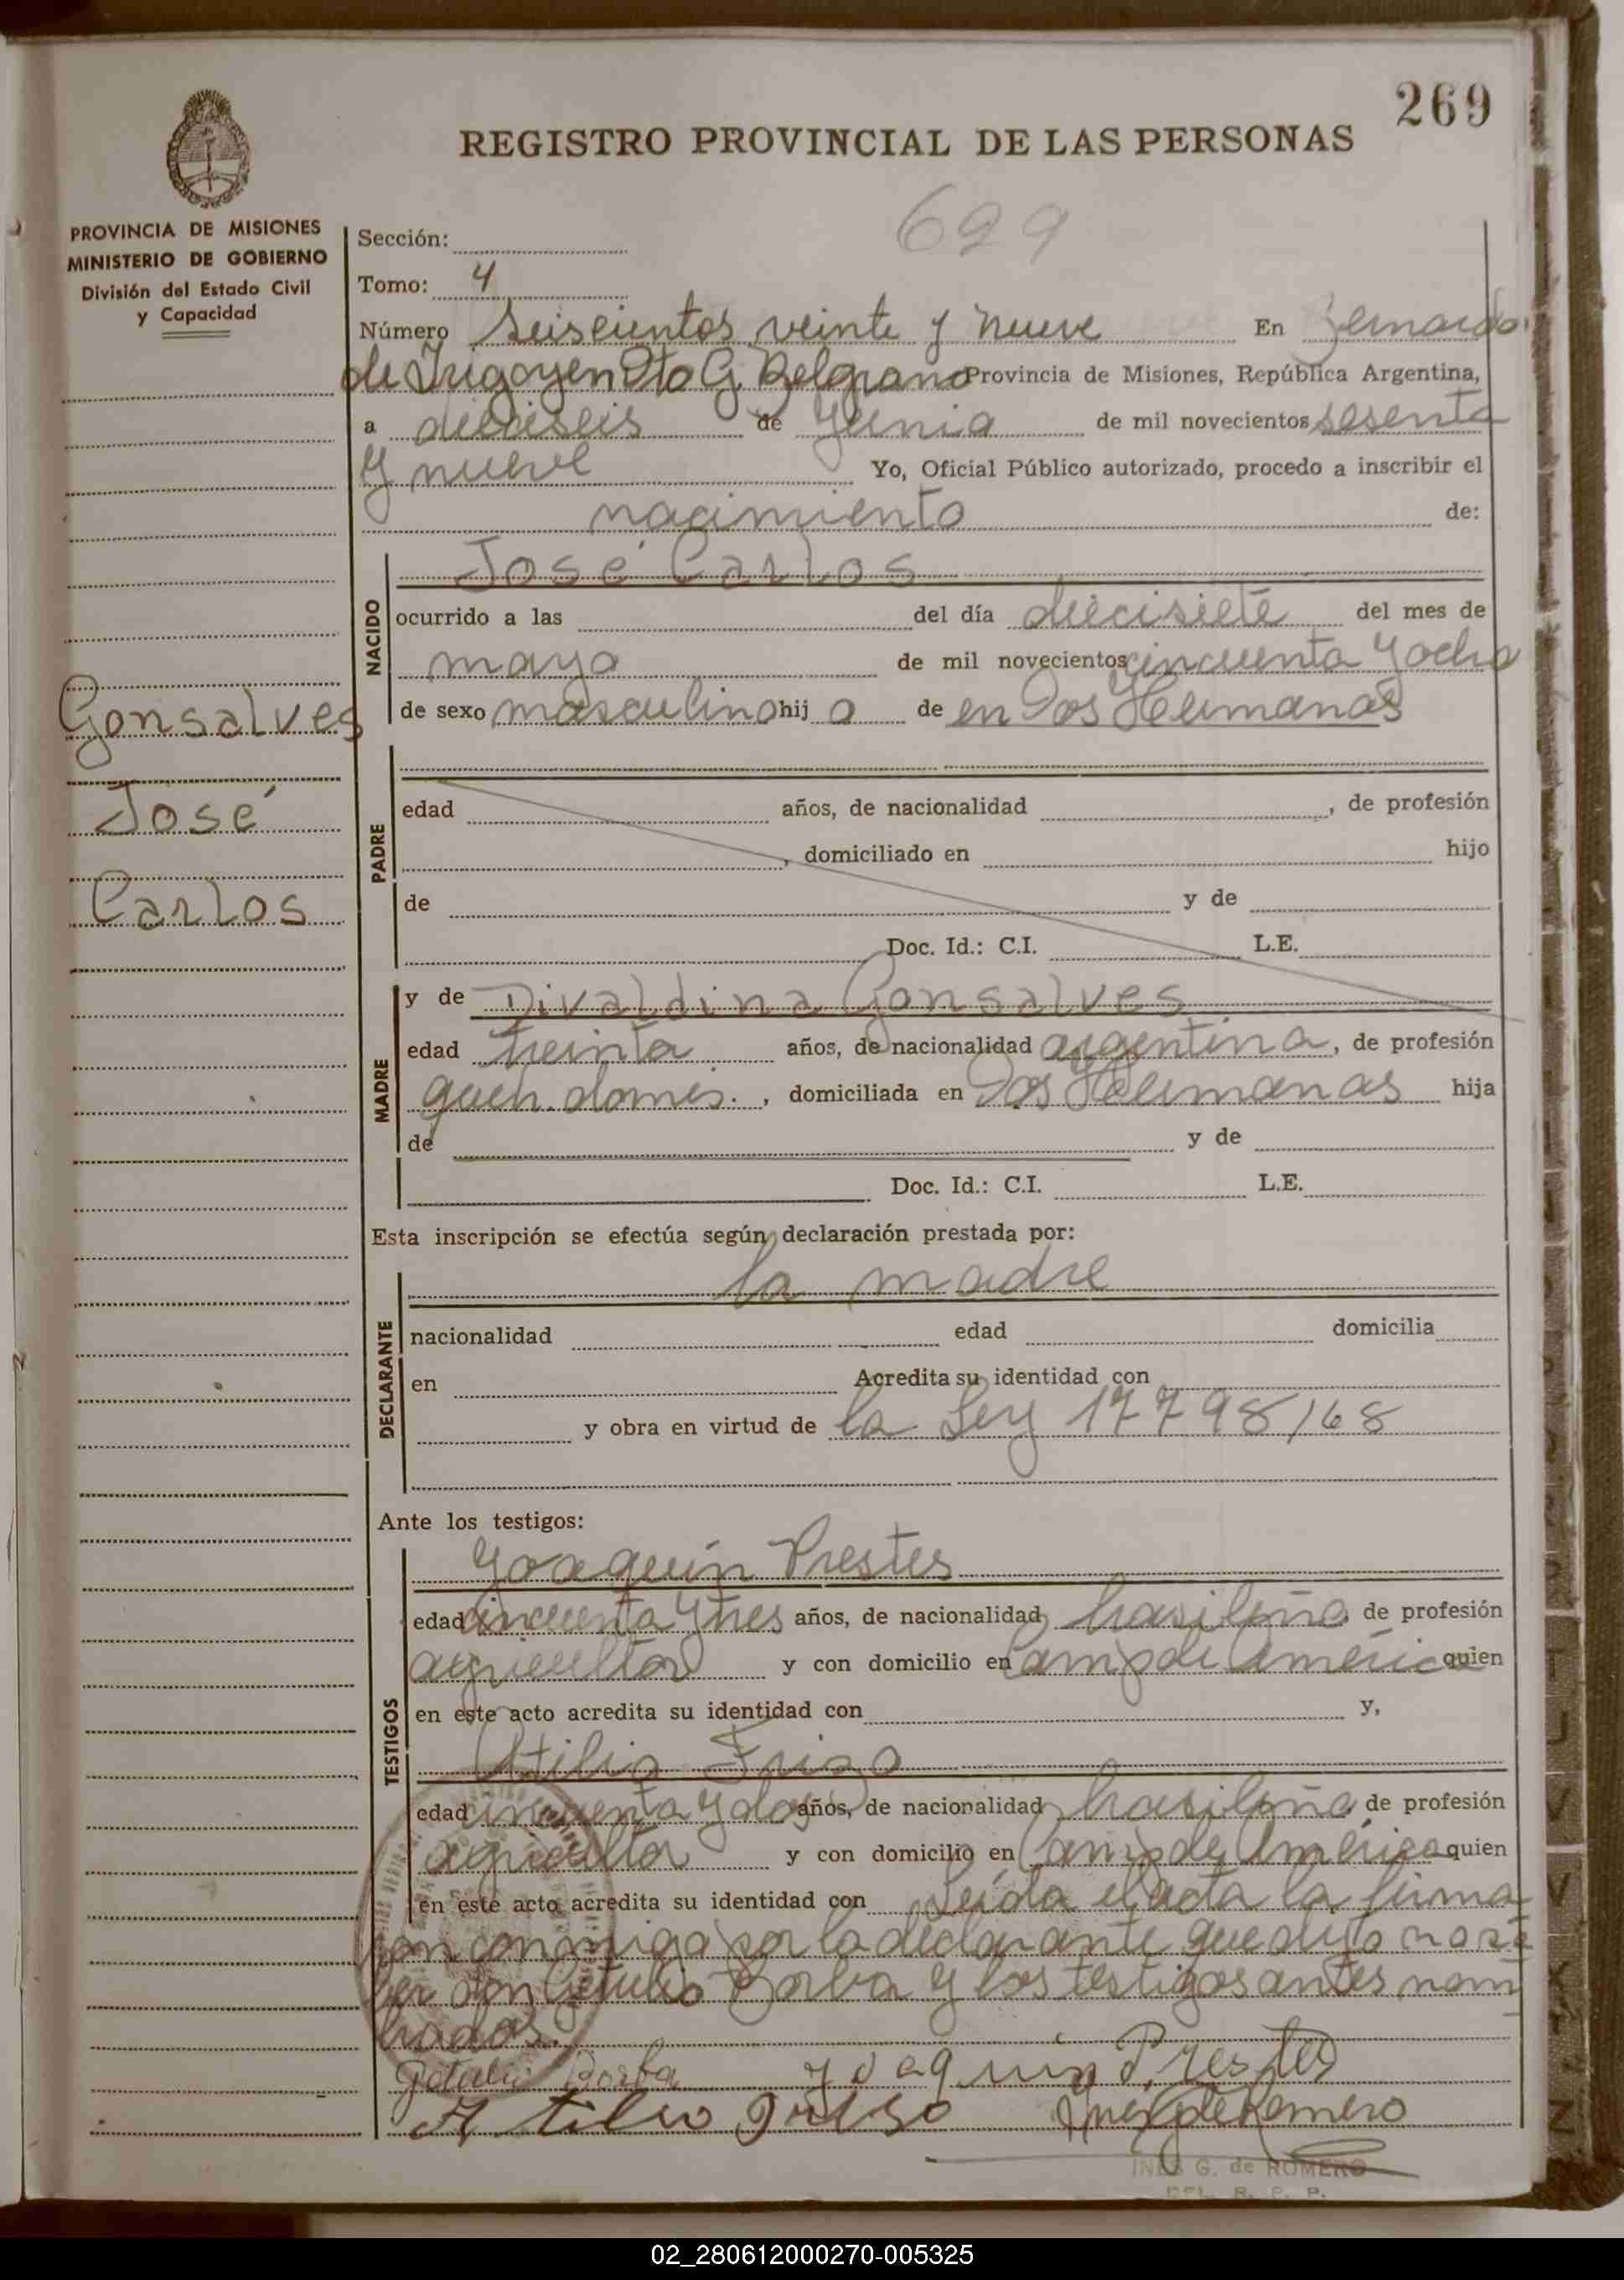 269
REGISTRO PROVINCIAL DE LAS PERSONAS
629
PROVINCIA DE MISIONES
MINISTERIO DE GOBIERNO
División del Estado Civil
y Capacidad
Sección:
Tomo: 4
Número Seiscientos veinte y nueve En Bernardo
de Irigoyen Dto G. Belgrano Provincia de Misiones, República Argentina,
a dieciseis de Junio de mil novecientos sesenta
y nueve Yo, Oficial Público autorizado, procedo a inscribir el
nacimiento de:
NACIDO
José Carlos
ocurrido a las del día diecisiete del mes de
mayo de mil novecientos cincuenta y ocho
de sexo masculino hij o de en Dos Hermanas
Gonsalves
José
Carlos
PADRE
edad años, de nacionalidad , de profesión
, domiciliado en hijo
de y de
Doc. Id.: C.I. L.E.
MADRE
y de Divaldina Gonsalves
edad treinta años, de nacionalidad argentina, de profesión
queh. domés. , domiciliada en Dos Hermanas hija
de y de
Doc. Id.: C.I. L.E.
Esta inscripción se efectúa según declaración prestada por:
DECLARANTE
la madre
nacionalidad edad domicilia
en Acredita su identidad con
y obra en virtud de la Ley 17798/68
Ante los testigos:
TESTIGOS
Joaquín Prestes
edad cincuenta y tres años, de nacionalidad brasileña de profesión
agricultor y con domicilio en Camp de América quien
en este acto acredita su identidad con y,
Atilio Friso
edad cincuenta y dos años, de nacionalidad brasileña, de profesión
agricultor y con domicilio en Camp de América quien
en este acto acredita su identidad con Leída el acta la firma
on conmigo por la declarante que dijo no sa
ber don Getulio Borba y los testigos antes nom
brados.
Getulio Borba Joaquin Prestes
Atilio Friso Ines G de Romero
INES G. de ROMERO
DEL. R. P. P.
02_280612000270-005325